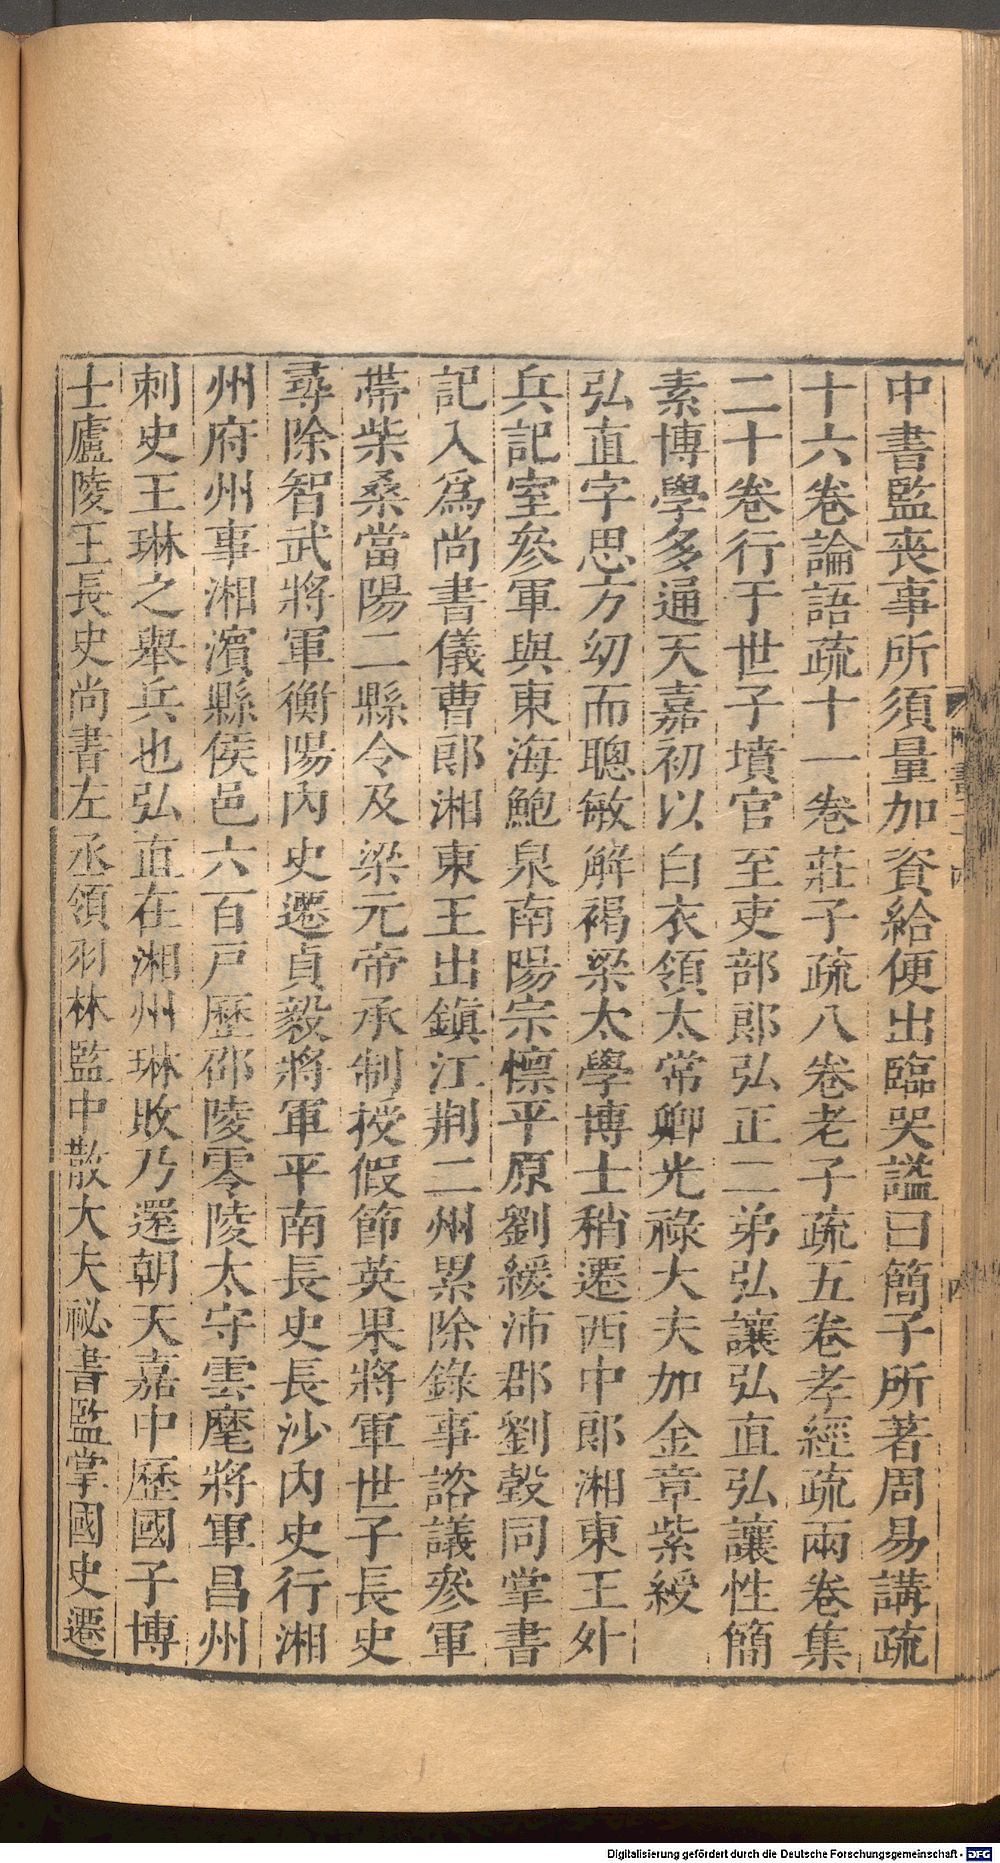 中書監喪事所須量加資給便出臨哭謚曰簡子所著周易講疏
十六卷論語疏十一卷莊子疏八卷老子疏五卷孝經疏兩卷集
二十卷行于世子墳官至吏部郎弘正二弟弘讓弘直弘讓性簡
素博學多通天嘉初以白衣領太常卿光祿大夫加金章紫綬
弘直字思方幼而聰敏解褐梁太學博士稍遷西中郎湘東王外
兵記室參軍與東海鮑泉南陽宗懍平原劉緩沛郡劉瑴同掌書
記入爲尚書儀曹郎湘東王出鎮江荊二州累除錄事諮議參軍
帶柴桑當陽二縣令及梁元帝承制授假節英果將軍世子長史
尋除智武將軍衡陽內史遷貞毅將軍平南長史長沙內史行湘
州府州事湘濱縣侯邑六百戸歷邵陵零陵太守雲麾將軍昌州
刺史王琳之舉兵也弘直在湘州琳敗乃還朝天嘉中歷國子博
士廬陵王長史尚書左丞領羽林監中散大夫祕書監掌國史遷
Digitalisierung gefördert durch die Deutsche Forschungsgemeinschaft - DFG